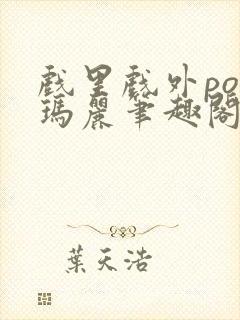 戲里戲外po
瑪麗筆趣閣
葉天浩